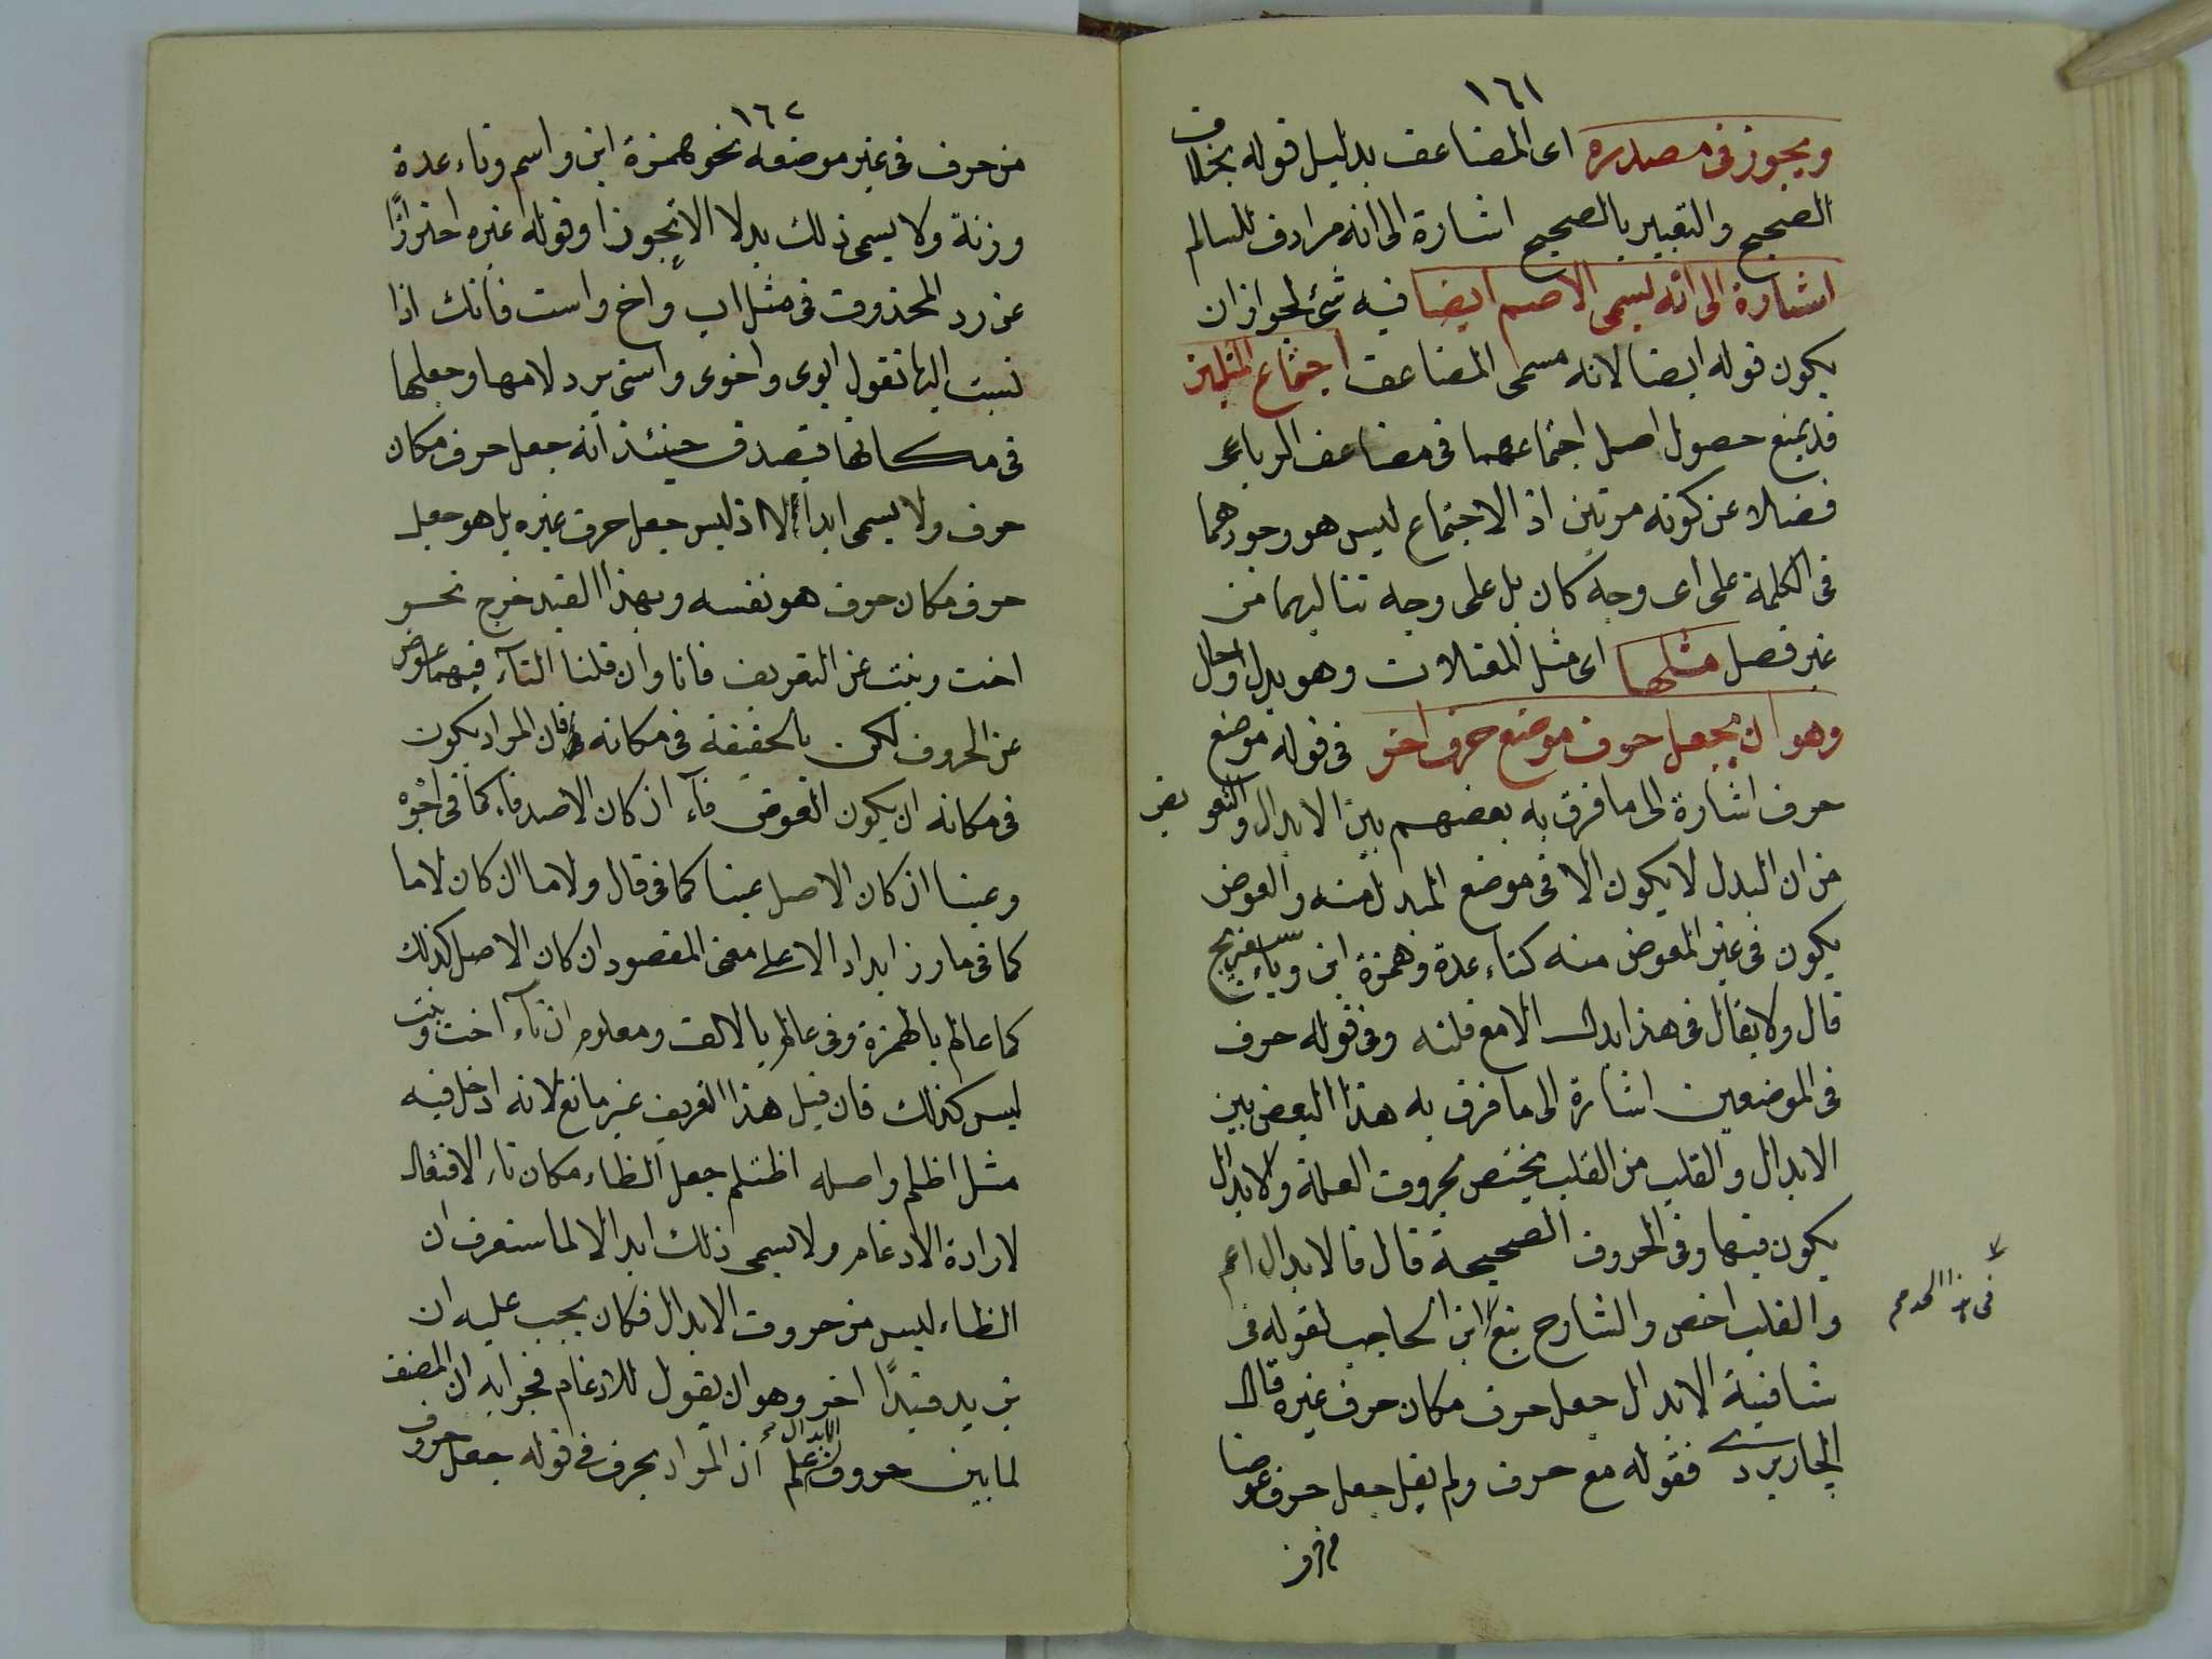 ١٦١
ويجوز فى مصدره اى المضاعف بدليل قوله بخلاف
الصحيح والتعبير بالصحيح اشارة الى انه مرادف للسالم
اشارة الى انه يسمى الاصم ايضا فيه شئ لجواز ان
يكون قوله ايضا لانه مسمى المضاعف اجتماع المثلين
قد يمنع حصول اصل اجتماعهما فى مضاعف الرباعى
فضلا عن كونه مرتين اذ الاجتماع ليس هو وجودهما
فى الكلمة على اى وجه كان بل على وجه تتاليهما من
غير فصل مثلها اى مثل المعتلات وهو بدل او حال
وهو ان يجعل حرف موضع حرف اخر فى قوله موضع
حرف اشارة الى ما فرق به بعضهم بين الابدال والتعويض
من ان البدل لا يكون الا فى موضع المبدل منه والعوض
يكون فى غير المعوض منه كتاء عدة وهمزة ابن وياء سفيريج
قال ولا يقال فى هذا بدل الا مع قلته وفى قوله حرف
فى الموضعين اشارة الى ما فرق به هذا البعض بين
الابدال والقلب من القلب يختص بحروف العلة والابدال
يكون فيها وفى الحروف الصحيحة قال فالابدال اعم
والقلب اخص والشارح تبع ابن الحاجب لقوله فى
شافيته الابدال جعل حرف مكان حرف غيره قال
الجاربردى فقوله مع حرف ولم يقل جعل حرف عوضا
فى هذا الحد م
١٦٢
من حرف فى غير موضعه نحو همزة ابن واسم وتاء عدة
وزنة ولا يسمى ذلك بدلا الا تجوزا وقوله غيره احترازًا
عن رد المحذوف فى مثل اب واخ واست فانك اذا
نسبت اليها تقول ابوى واخوى واستى برد لامها وجعلها
فى مكانها فيصدق حينئذ انه جعل حرف مكان
حرف ولا يسمى ابدالا اذ ليس جعل حرف غيره بل هو جعل
حرف مكان حرف هو نفسه وبهذا القيد خرج نحو
اخت وبنت عن التعريف فانا وان قلنا التآء فيهما عوض
عن الحروف لكن بالحقيقة فى مكانه فان المراد بكون
فى مكانه ان يكون العوض فآء ان كان الاصل فاء كما فى اجوه
وعينا ان كان الاصل عينا كما فى قال ولاما ان كان لاما
كما فى ما وزايدا الا على معنى المقصود ان كان الاصل كذلك
كما عالم بالهمزة وفى عالم بالالف ومعلوم ان تآء اخت وبنت
ليس كذلك فان قيل هذا التعريف غير مانع لانه ادخل فيه
مثل اظلم واصله اظتلم جعل الظاء مكان تاء الافتعال
لارادة الادغام ولا يسمى ذلك ابدالا لما ستعرف ان
الظاء ليس من حروف الابدال فكان يجب عليه ان
يزيد قيدًا اخر وهو ان يقول للادغام فجوابه ان المصنف
لما بين حروف الابدال علم ان المراد بحرف فى قوله جعل حرف